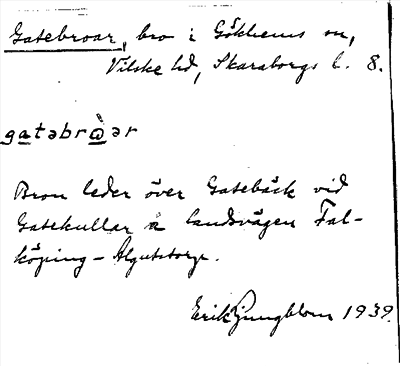 Gatebroar, bro i Gökhems sn,
Vilske hd, Skaraborgs l. 8.
gatəbrὰər
Bron leder över Gatebäck vid
Gatekullar å landsvägen Fal-
köping - Algutstorp.
Erik Ljungblom 1939.